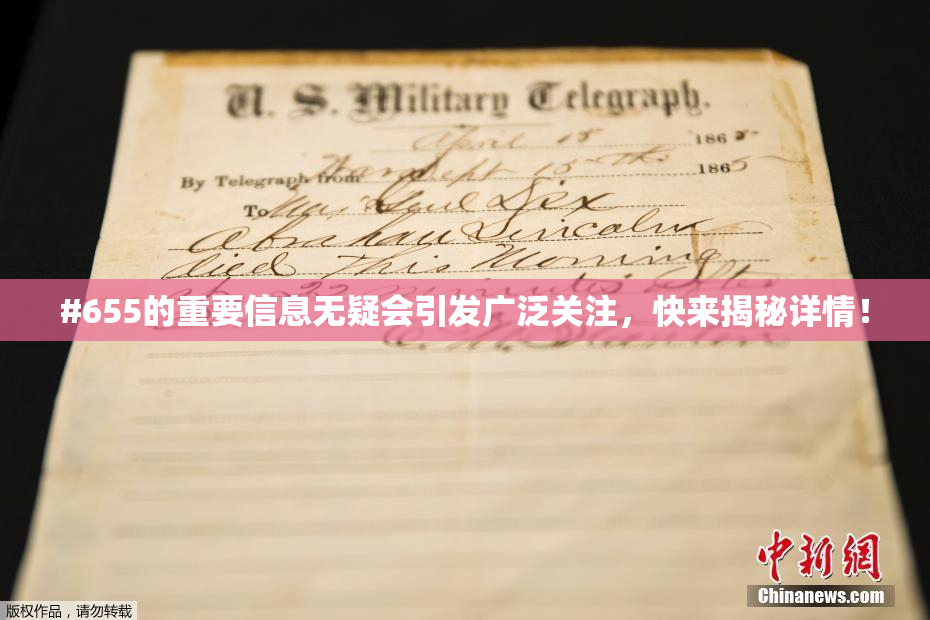 U. S. Military Telegraph.
April 15 1865
By Telegraph from War Dept 15th 1865
To Maj Genl Dix
Abraham Lincoln
died This Morning
at 22 minutes after
#655的重要信息无疑会引发广泛关注，快来揭秘详情！
E. M. Stanton
中新网
Chinanews.com
版权作品，请勿转载